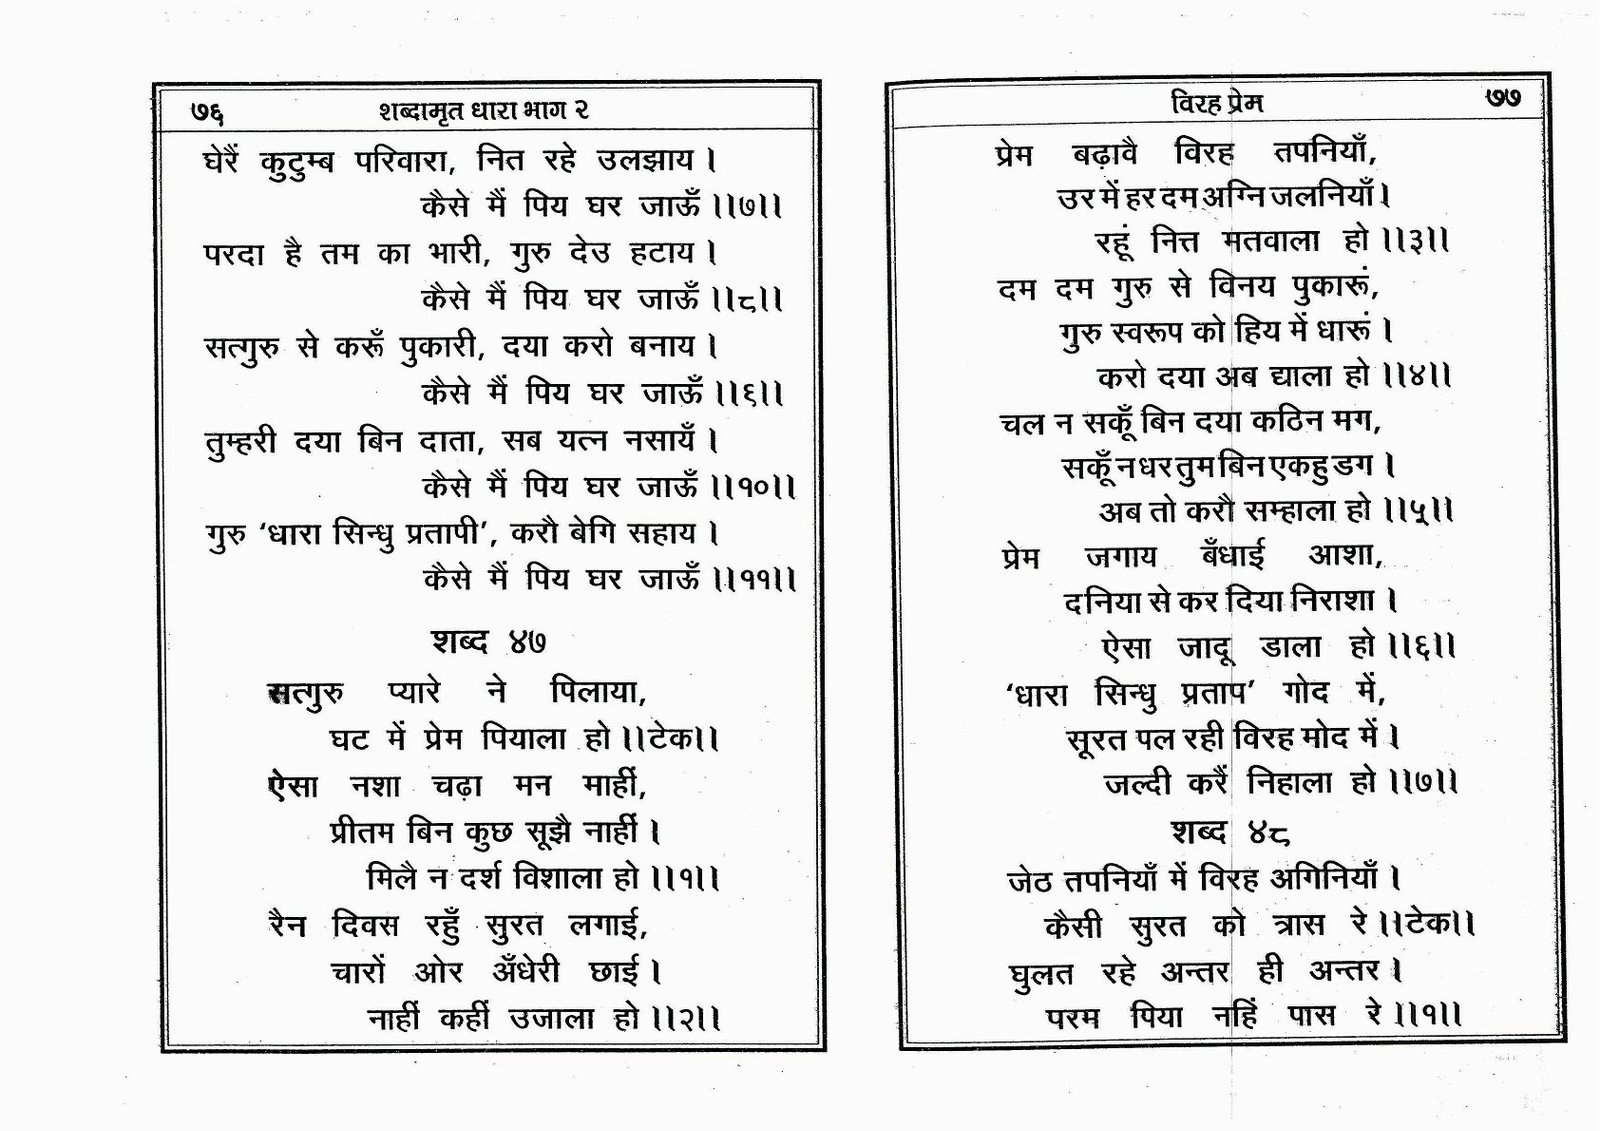 ७६ शब्दामृत धारा भाग २
घेरैं कुटुम्ब परिवारा, नित रहे उलझाय ।
कैसे मैं पिय घर जाऊँ ।।७।।
परदा है तम का भारी, गुरु देउ हटाय ।
कैसे मैं पिय घर जाऊँ ।।८।।
सत्गुरु से करूँ पुकारी, दया करो बनाय ।
कैसे मैं पिय घर जाऊँ ।।६।।
तुम्हरी दया बिन दाता, सब यत्न नसायँ ।
कैसे मैं पिय घर जाऊँ ।।१०।।
गुरु ‘धारा सिन्धु प्रतापी’, करौ बेगि सहाय ।
कैसे मैं पिय घर जाऊँ ।।११।।
शब्द ४७
सत्गुरु प्यारे ने पिलाया,
घट में प्रेम पियाला हो ।।टेक।।
ऐसा नशा चढ़ा मन माहीं,
प्रीतम बिन कुछ सूझै नाहीं ।
मिलै न दर्श विशाला हो ।।१।।
रैन दिवस रहुँ सुरत लगाई,
चारों ओर अँधेरी छाई ।
नाहीं कहीं उजाला हो ।।२।।
विरह प्रेम ७७
प्रेम बढ़ावै विरह तपनियाँ,
उर में हर दम अग्नि जलनियाँ ।
रहूं नित्त मतवाला हो ।।३।।
दम दम गुरु से विनय पुकारूं,
गुरु स्वरूप को हिय में धारूं ।
करो दया अब द्याला हो ।।४।।
चल न सकूँ बिन दया कठिन मग,
सकूँ न धर तुम बिन एकहु डग ।
अब तो करौ सम्हाला हो ।।५।।
प्रेम जगाय बँधाई आशा,
दनिया से कर दिया निराशा ।
ऐसा जादू डाला हो ।।६।।
‘धारा सिन्धु प्रताप’ गोद में,
सूरत पल रही विरह मोद में ।
जल्दी करैं निहाला हो ।।७।।
शब्द ४८
जेठ तपनियाँ में विरह अगिनियाँ ।
कैसी सुरत को त्रास रे ।।टेक।।
घुलत रहे अन्तर ही अन्तर ।
परम पिया नहिं पास रे ।।१।।